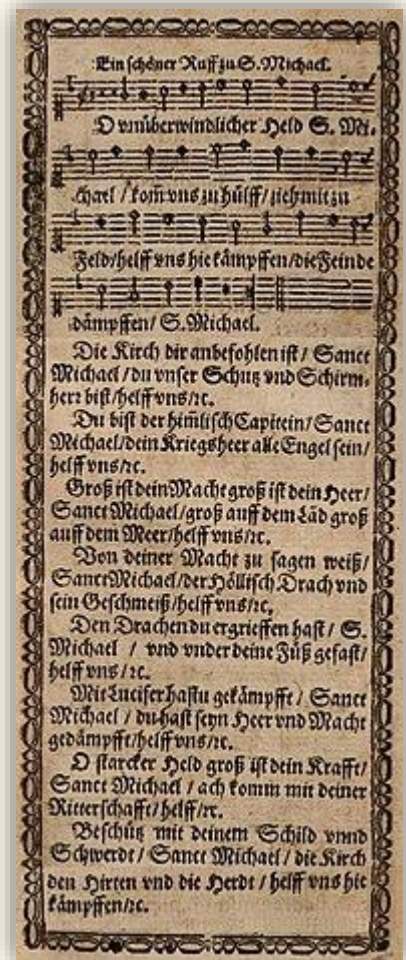 Ein schöner Ruff zu S. Michael.
O vnüberwindlicher Held S. Mi-
chael / kom̃ vns zu hülff / zieh mit zu
Feld/helff vns hie kämpffen/die Feinde
dämpffen/ S. Michael.
Die Kirch dir anbefohlen ist / Sanct
Michael / du vnser Schutz vnd Schirm-
herr bist/helff vns/ꝛc.
Du bist der him̃lisch Capitein/ Sanct
Michael/dein Kriegsheer alle Engel sein/
helff vns/ꝛc.
Groß ist dein Macht groß ist dein Heer/
Sanct Michael/groß auff dem Läd groß
auff dem Meer/helff vns/ꝛc.
Von deiner Macht zu sagen weiß/
Sanct Michael/der Höllisch Drach vnd
sein Geschmeiß/helff vns/ꝛc.
Den Drachen du ergrieffen hast / S.
Michael / vnd vnder deine Füß gefast/
helff vns /ꝛc.
Mit Lucifer hastu gekämpfft / Sanct
Michael / du hast seyn Heer vnd Macht
gedämpfft/helff vns/ꝛc.
O starcker Held groß ist dein Krafft/
Sanct Michael / ach komm mit deiner
Ritterschafft/helff/ꝛc.
Beschütz mit deinem Schild vnnd
Schwerdt / Sanct Michael / die Kirch
den Hirten vnd die Herdt / helff vns hie
kämpffen/ꝛc.